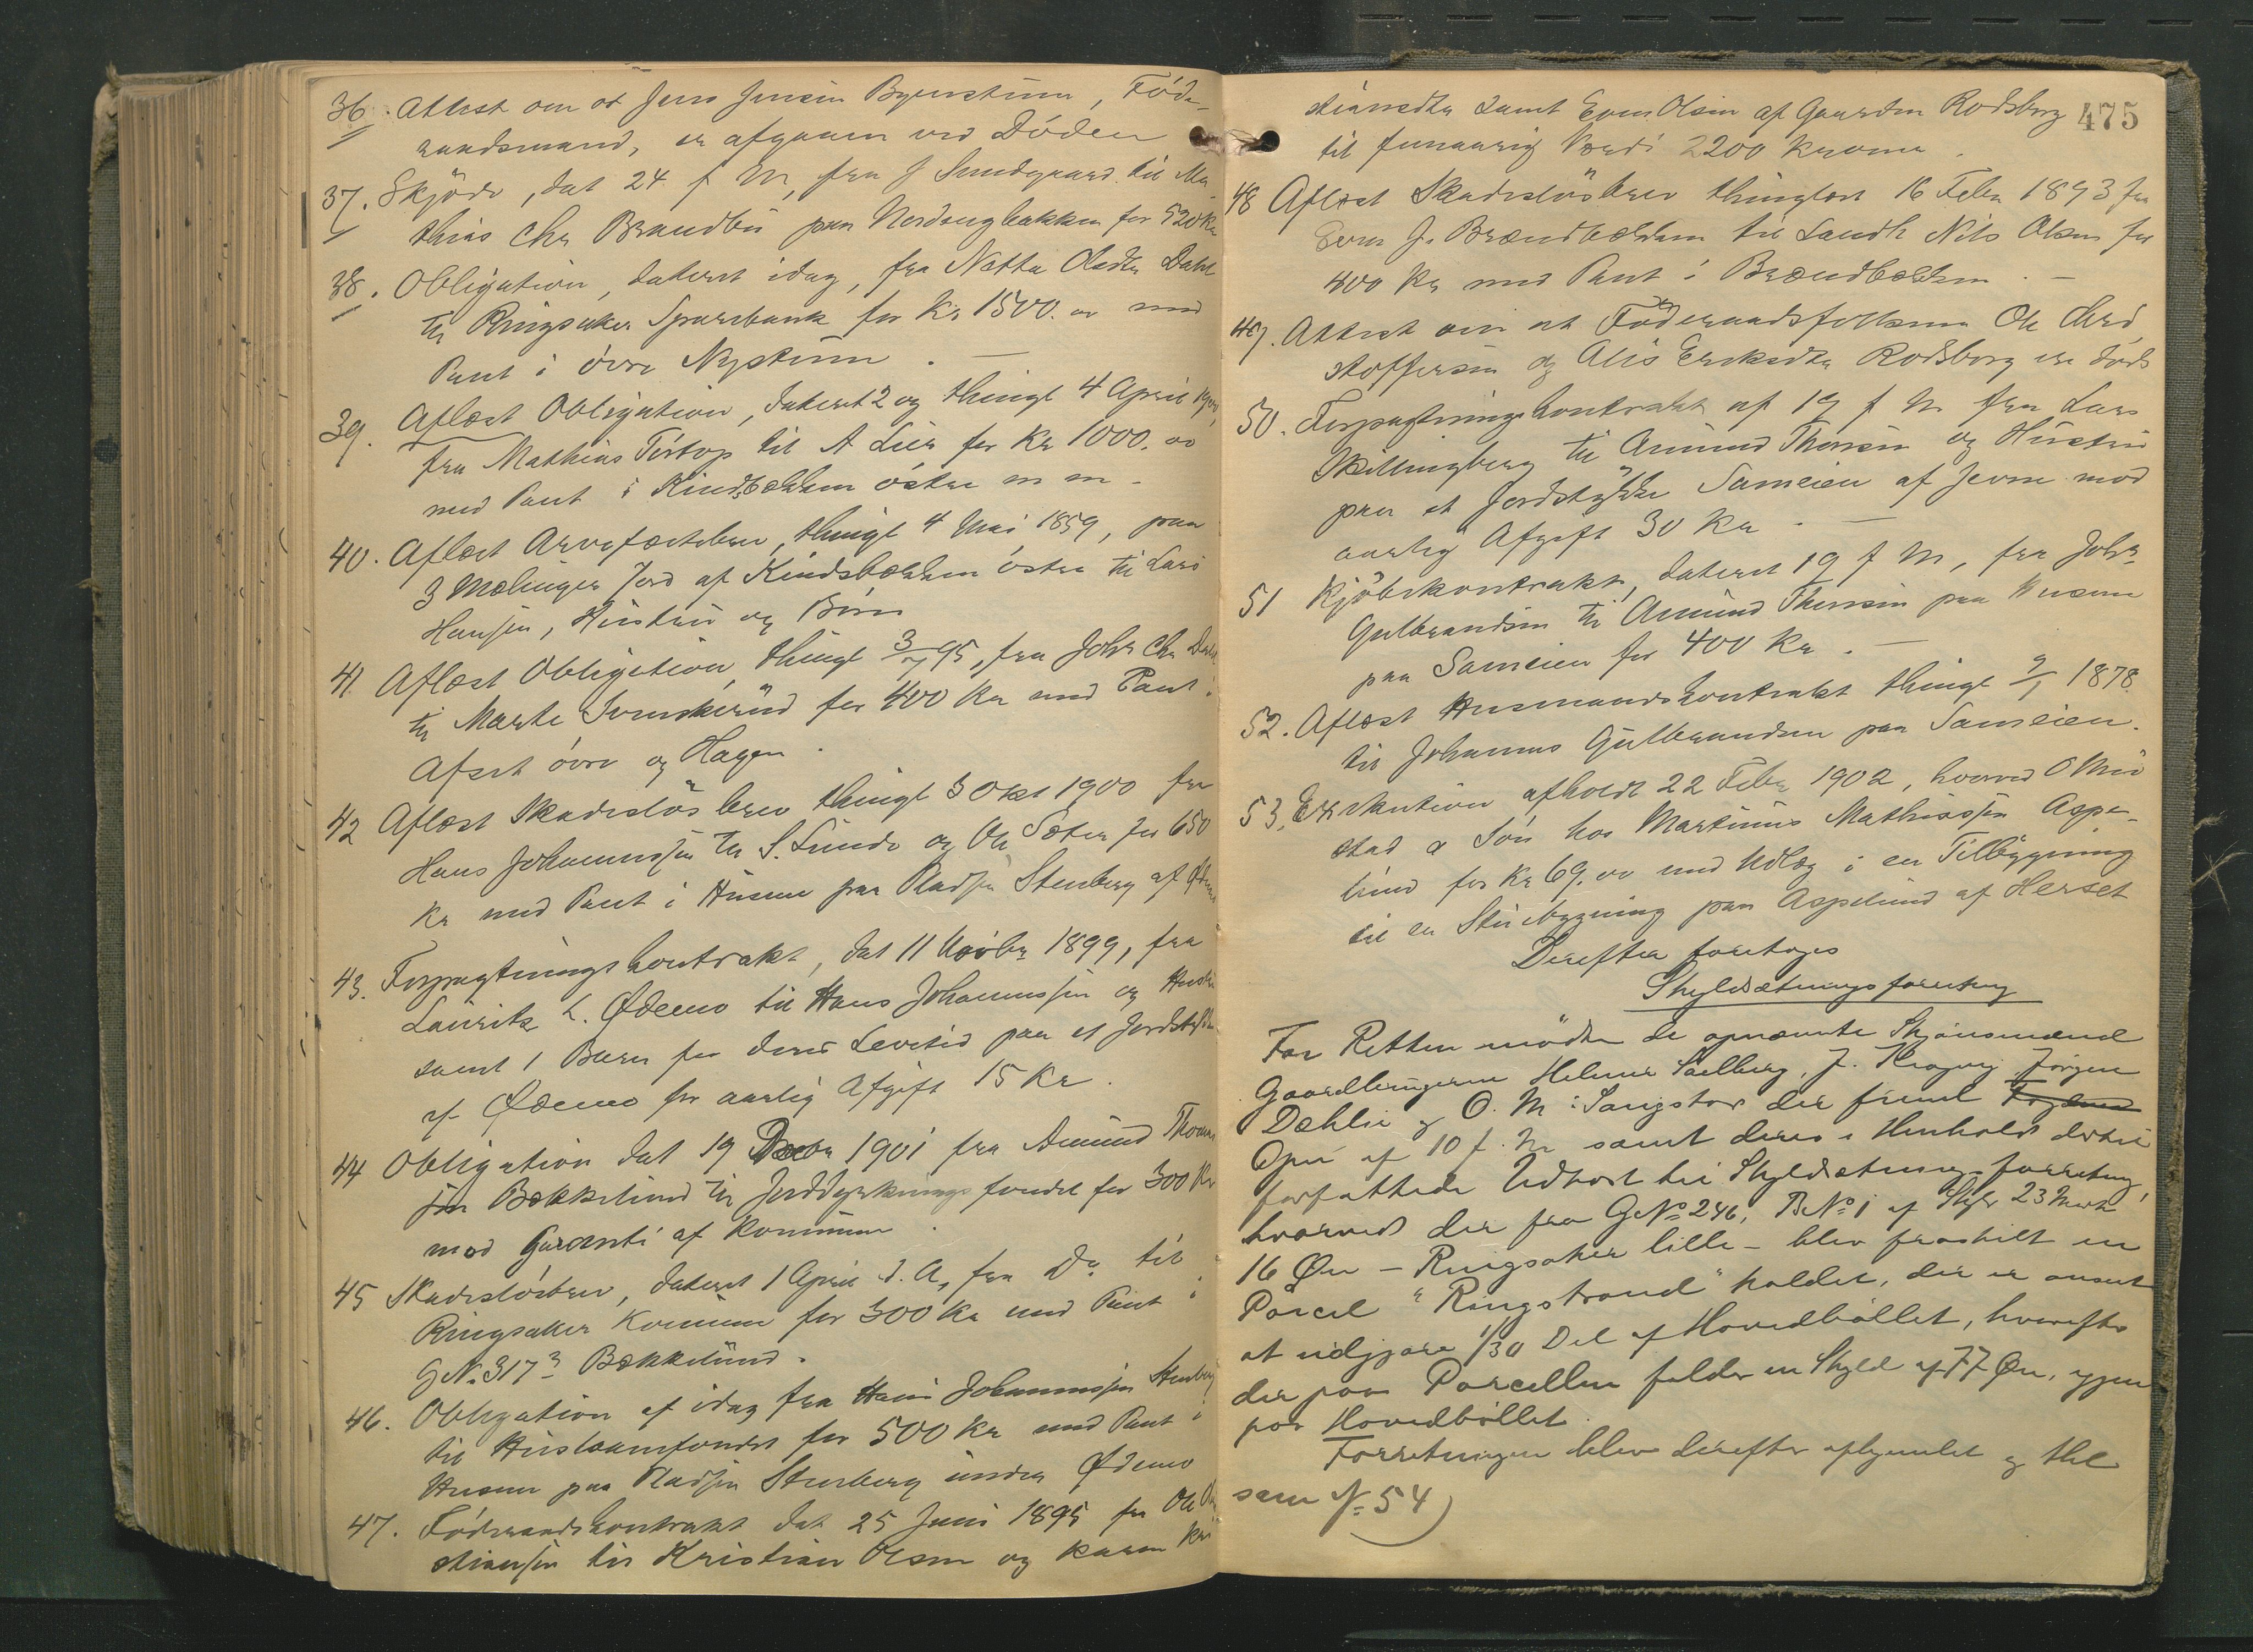 36. Attest om at Jens Jensen Byenstuen, Føde-
raadsmand, er afgaaen ved Döden
37. Skjöde, dat 24 f M, fra J Sundgaard til Ma
thias Chr Brandbu paa Nordengbakken for 520 Kr
38. Obligation, dateret idag, fra Netta Olsdtr Dahl
til Ringsaker Sparebank for Kr 1500.00 med
Pant i övre Nystuen. —
39. Aflæst Obligation, dateret 2 og thingl 4 April 1900,
fra Mathias Tørtop til A Lier for Kr 1000.00
med Pant i Kindsbækken östre m m.
40. Aflæst Arvefæstebrev, thingl 4 Mai 1859, paa
3 Mælinger Jord af Kindsbækken östre til Lars
Hansen, Hustru og Börn
41. Aflæst Obligation, thingl 3/7 95, fra Johs Chr Dahl
til Marte Svenskerud for 400 Kr med Pant i
Afset övre og Hagen.
42 Aflæst Skadeslösbrev thingl 3 Okt 1900 fra
Hans Johannessen til S. Sunde og Ole Sæter for 650
Kr med Pant i Husene paa Pladsen Stenberg af Ødemo
43. Forpagtningskontrakt, dat 11 Novbr 1899, fra
Lauritz L. Ødemo til Hans Johannessen og Hustru
samt 1 Barn for deres Levetid paa et Jordstykke
af Ødemo for aarlig Afgift 15 Kr.
44 Obligation dat 19 Decbr 1901 fra Amund Thores
sen Bækkelund til Jorddyrkningsfondet for 300 Kr
mod Garanti af Kommunen.
45 Skadeslösbrev, dateret 1 April d. A, fra Do til
Ringsaker Kommune for 300 Kr med Pant i
G.N. 317³ Bækkelund.
46. Obligation af idag fra Hans Johannessen Stenberg
til Huslaanfondet for 500 Kr med Pant i
Husene paa Pladsen Stenberg under Ødemo
47. Föderaadskontrakt dat 25 Juni 1895 fra Ole
stiansen til Kristian Olsen og Karen Kri
475
stiansdtr samt Even Olsen af Gaarden Rodsberg
til femaarig Værdi 2200 Kroner.
48 Aflæst Skadeslösbrev thinglæst 16 Febr 1893 fra
Even J. Brændbækken til Landh Nils Olsen for
400 Kr med Pant i Brændbækken. —
49. Attest om at Föderaadsfolkene Ole Chri
stoffersen og Alis Eriksdtr Rodsberg ere døde
50. Forpagtningskontrakt af 19 f M. fra Lars
Skillingberg til Amund Thoresen og Hustru
paa et Jordstykke Sameien af Jevne mod
aarlig Afgift 30 Kr. —
51 Kjöbekontrakt, dateret 19 f M, fra Johs
Gulbrandsen til Amund Thoresen paa Husene
paa Sameien for 400 Kr. —
52. Aflæst Husmandskontrakt thingl 9/1 1878
til Johannes Gulbrandsen paa Sameien.
53. Exekution afholdt 22 Febr 1902, hvorved O Mæ
stad & Sön hos Martinus Mathissen Aspe-
lund for Kr 69.00 med Udlæg i en Tilbygning
til en Stuebygning paa Aspelund af Herset
Derefter foretoges
Skyldsætningsforretning
For Retten mödte de opnævnte Skjönsmænd
Gaardbrugerne Helmer Saelberg, J. Kragvig, Jörgen
Dæhlie og O. M. Sangstad der frem
Opn af 10 f. M samt deres i Henhold dertil
forfattede Udkast til Skyldsætningsforretning,
hvorved der fra GNo 246, BNo 1 af Skyld 23 Mark
16 Øre – Ringsaker lille – blev fraskilt en
Parcel "Ringstrand" kaldet, der er anseet
at udgjøre 1/30 Del af Hovedbøllet, hvorefter
der paa Parcellen falder en Skyld af 77 Øre, igjen
paa Hovedbøllet.
Forretningen blev derefter afhjemlet og thl
som No 54)